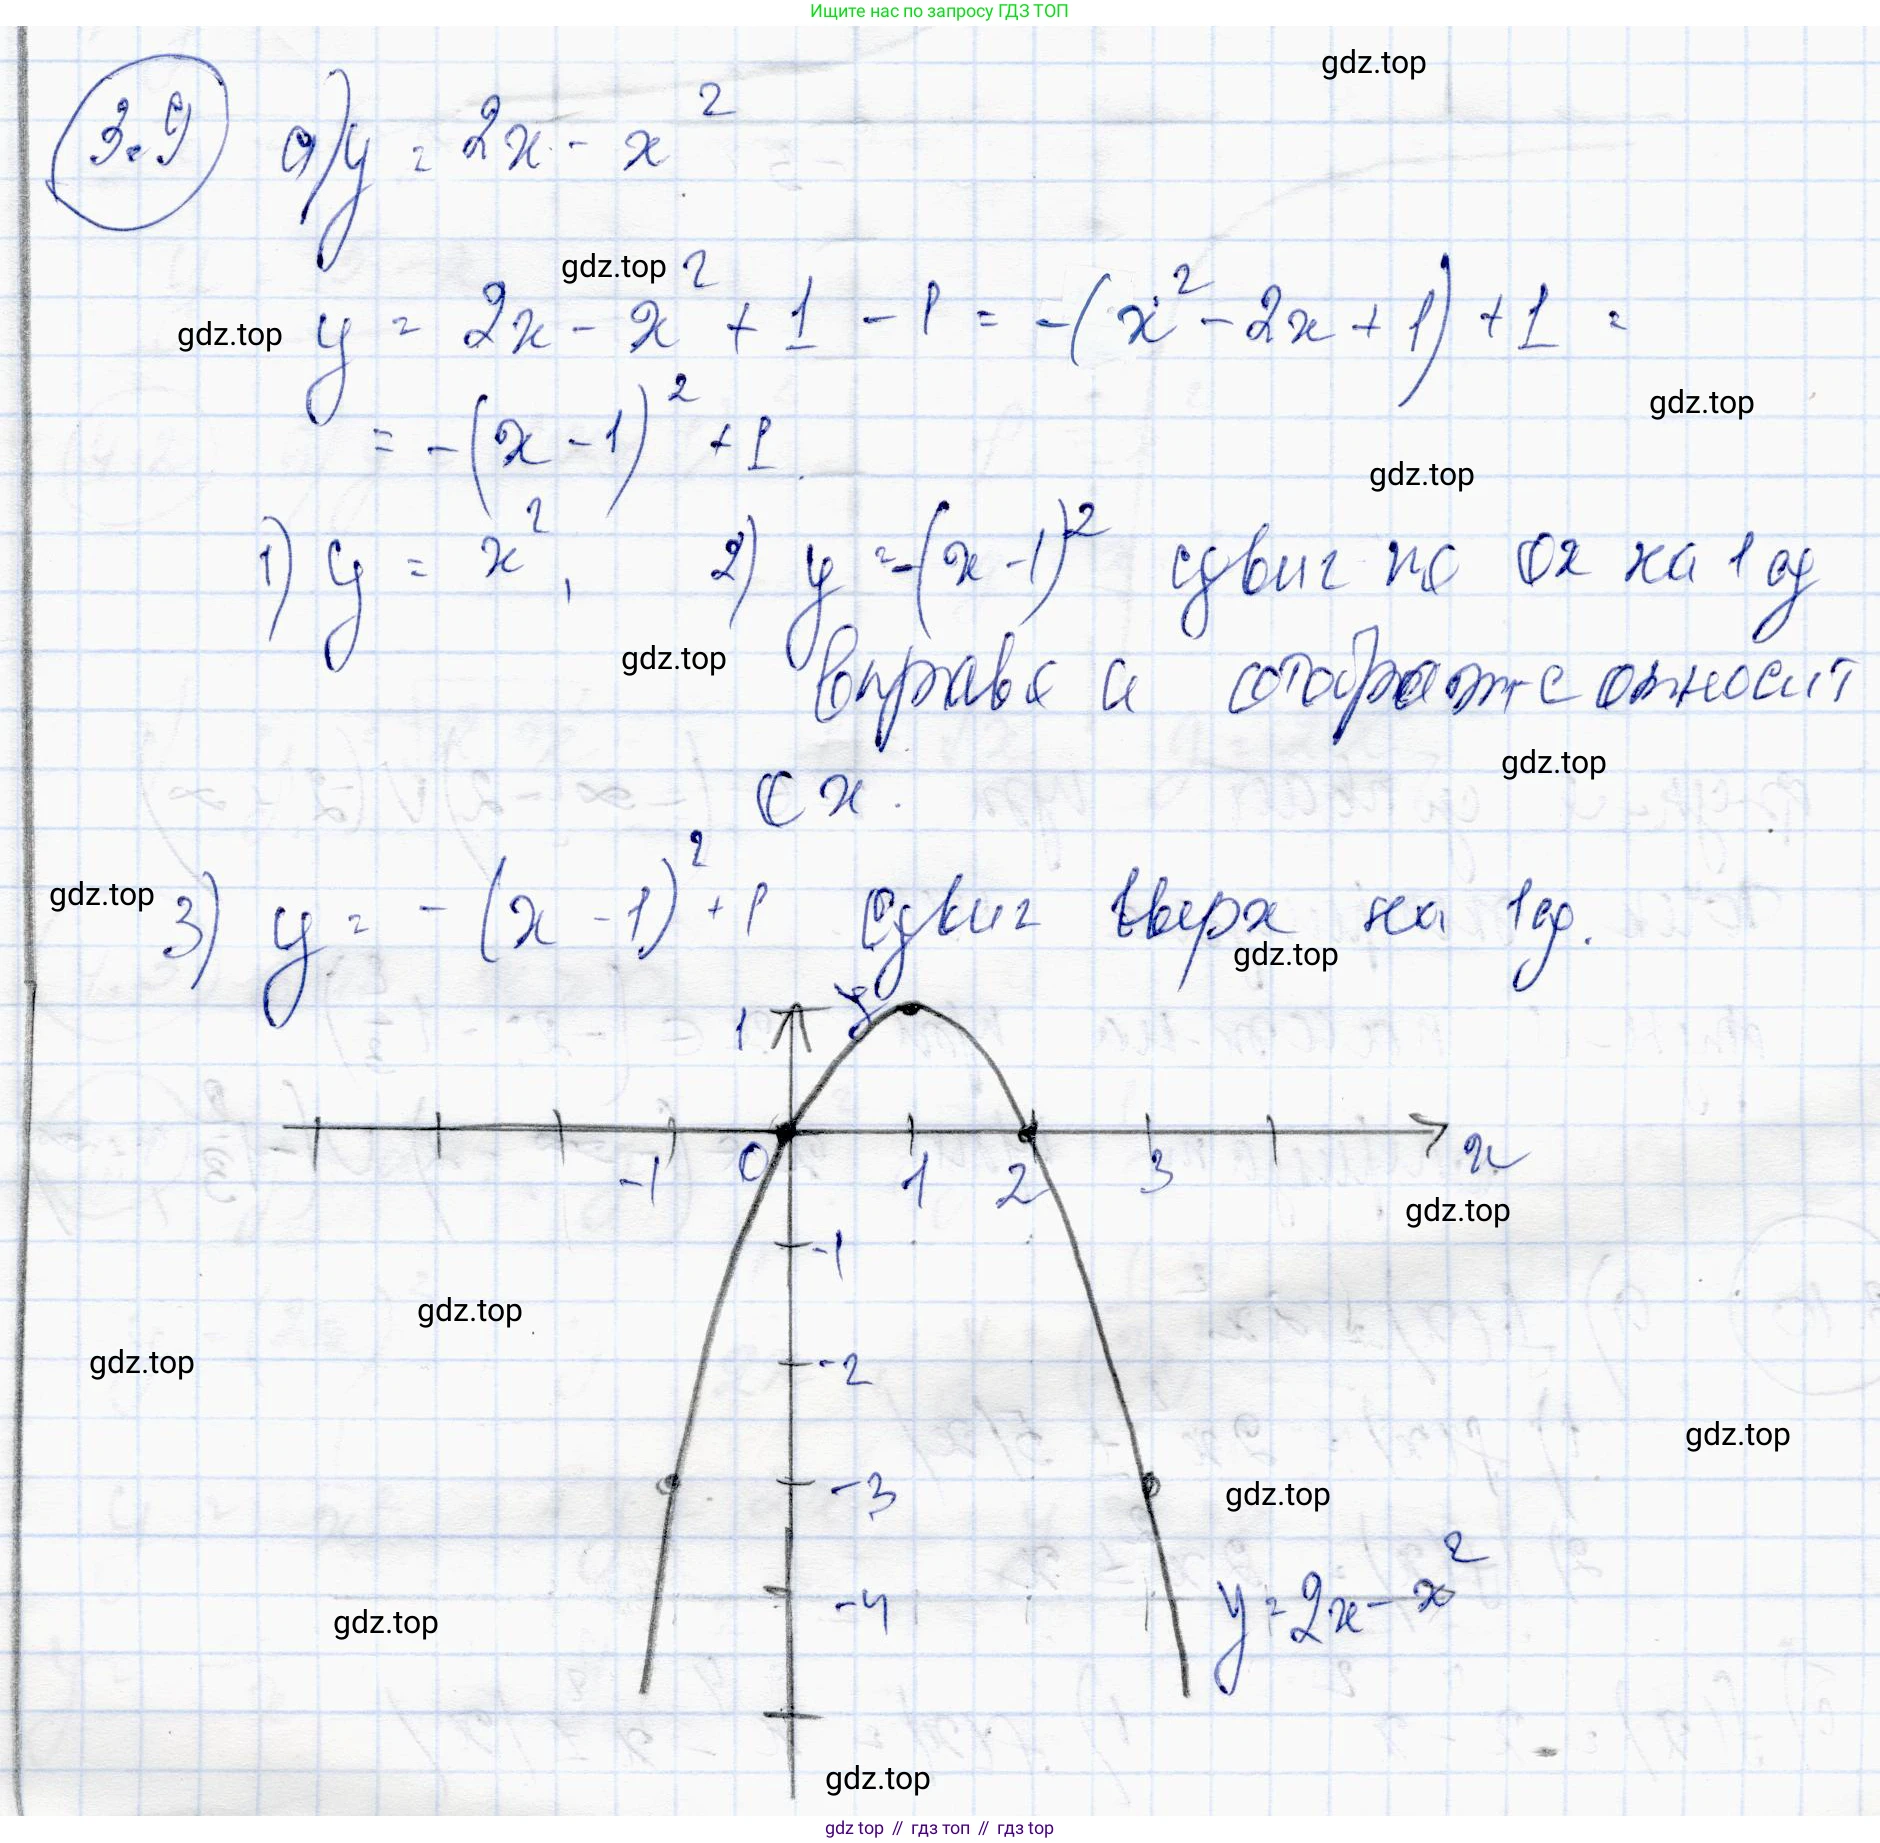 Ищите нас по запросу ГДЗ ТОП
gdz.top
3.9 а) y = 2x - x²
gdz.top
gdz.top y = 2x - x² + 1 - 1 = -(x² - 2x + 1) + 1 =
gdz.top
= -(x - 1)² + 1.
gdz.top
1) y = x², 2) y = -(x - 1)² сдвиг по ox на 1 ед
gdz.top вправо и отображе относит
gdz.top
ox.
gdz.top 3) y = -(x - 1)² + 1 сдвиг вверх на 1 ед.
gdz.top
1 y
-1 0 1 2 3 x
gdz.top
-1
gdz.top
gdz.top -2
gdz.top
-3 gdz.top
gdz.top -4 y = 2x - x²
gdz.top
gdz top // гдз топ // гдз top